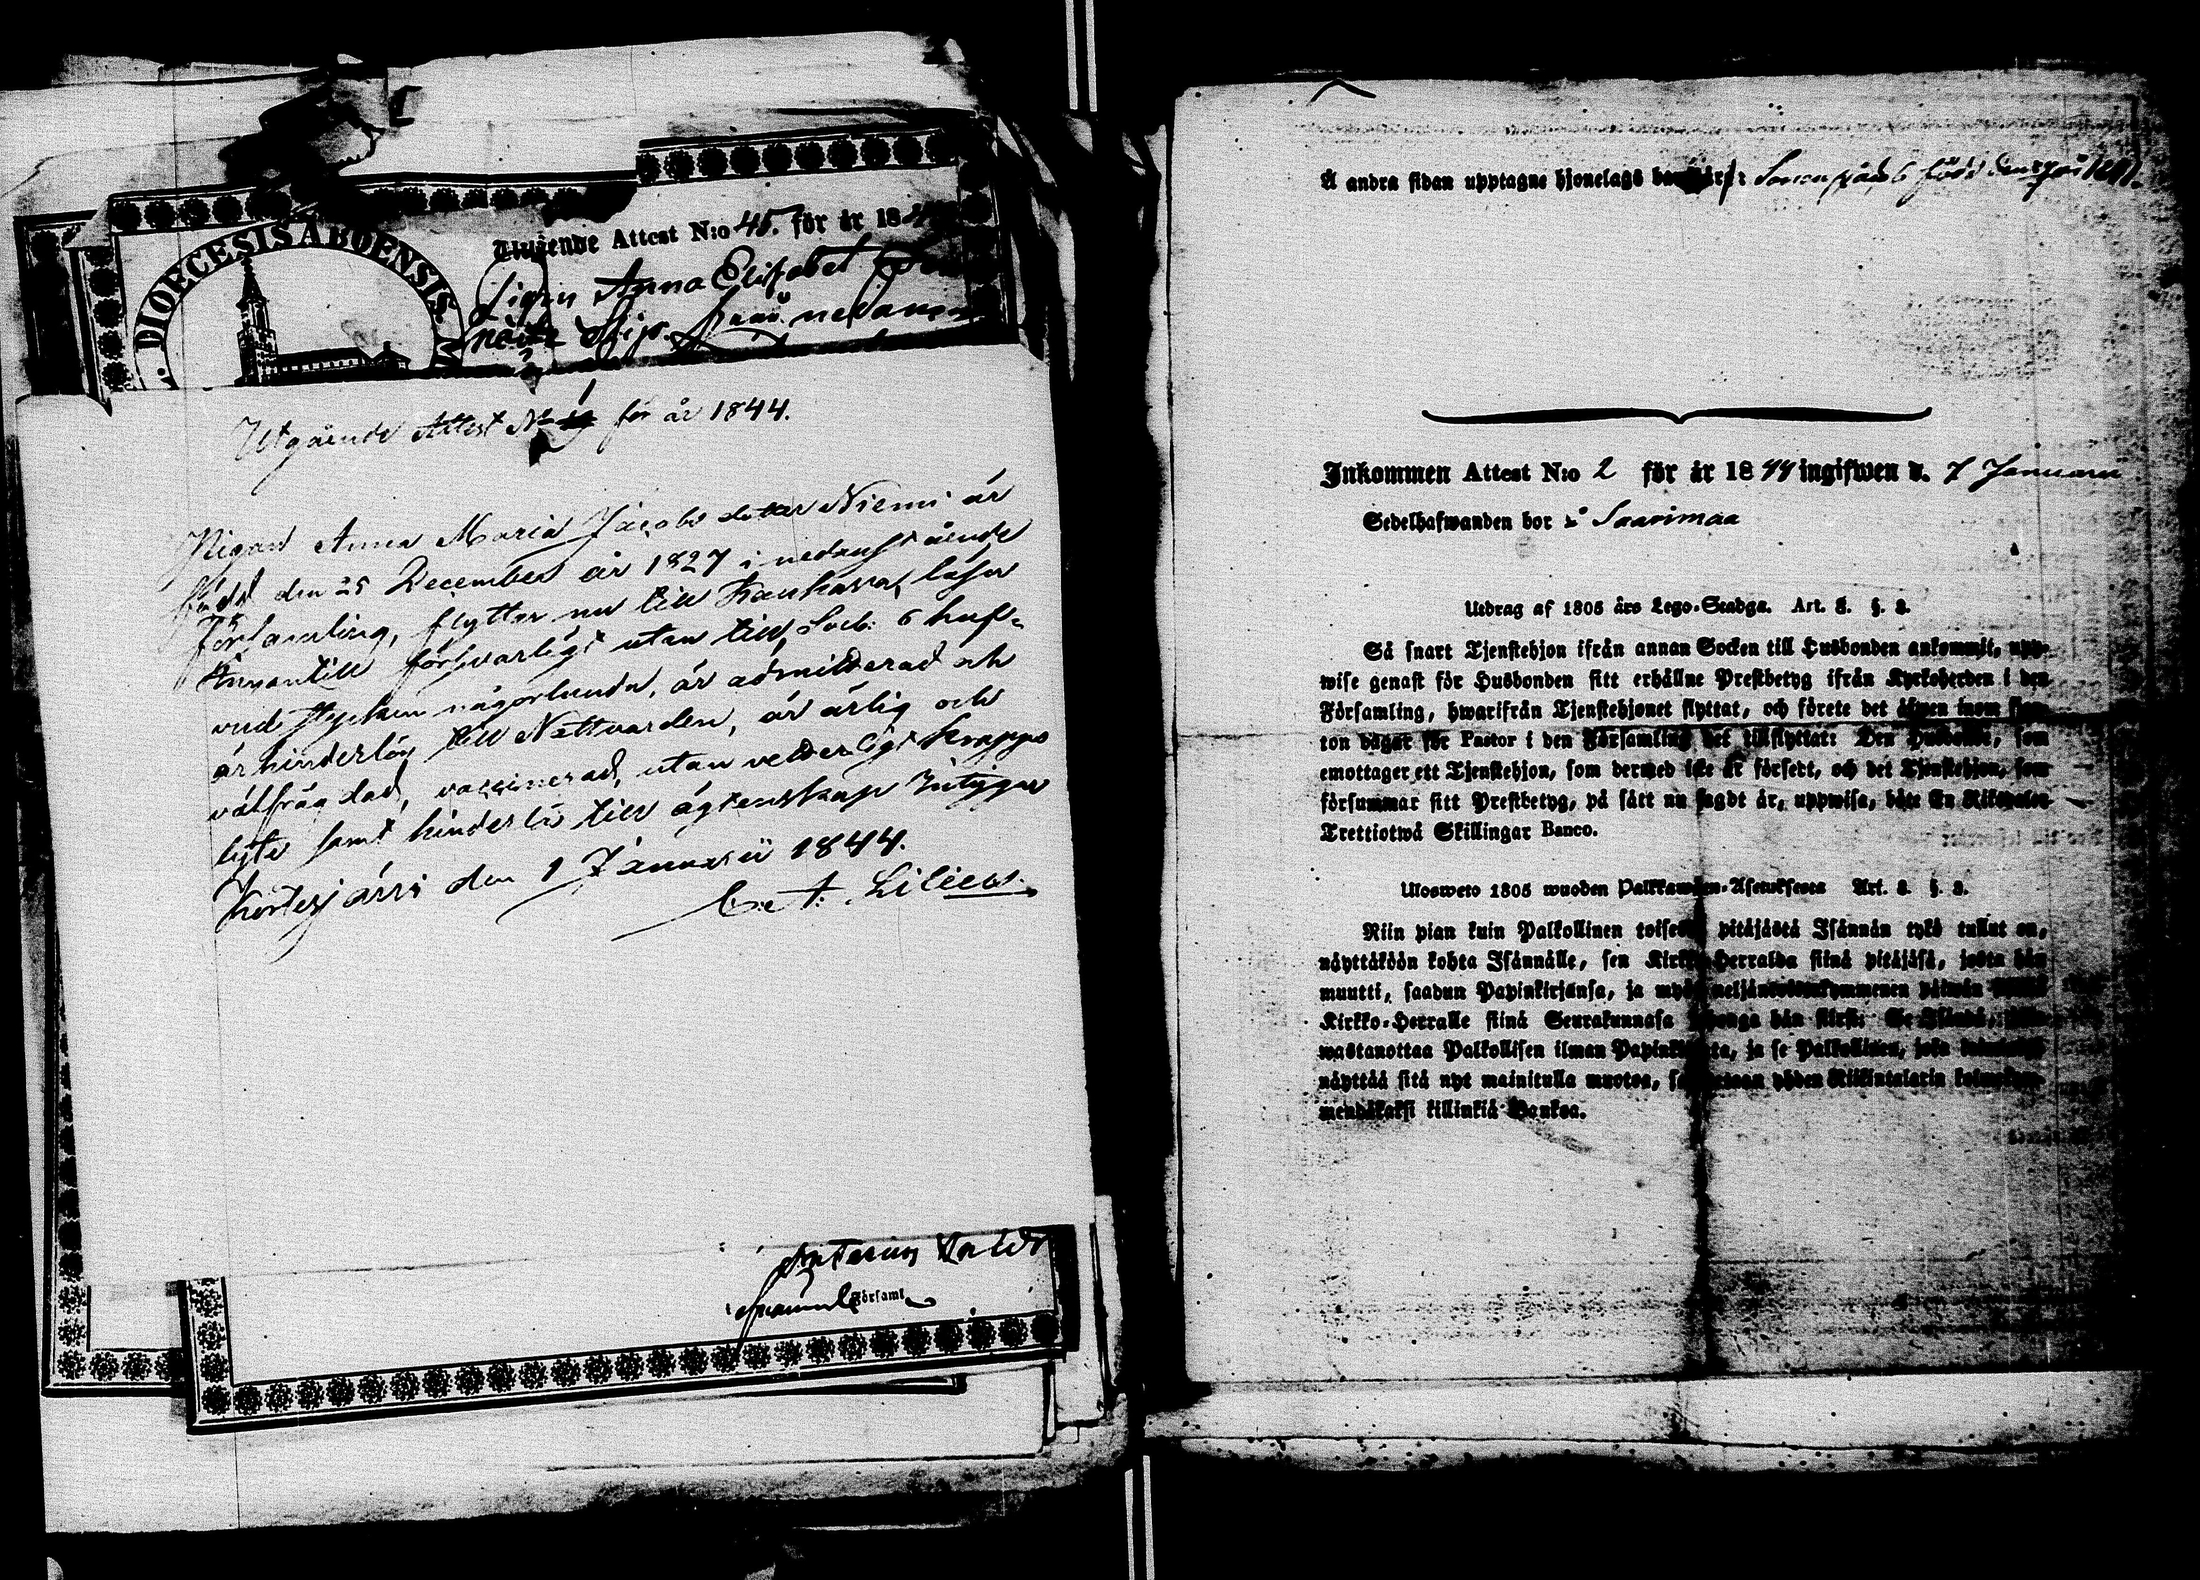 DIOECESIS ABOENSIS
Utgående Attest N:o 45. för år 18
Pigan Anna Elisabet
Utgående Attest No 1 för år 1844.
Pigan Anna Maria Jacobsdotter Niemi är
född den 25 December år 1827 i nedanstående
Församling, flyttar nu till Kauhava, läser
innantill försvarligt utan till, Lutb: 6 huf-
vud stycken någorlunda, är admitterad och
är hinderlös till Nattvarden, är ärlig och
välfrägdad, vaccinerad, utan vederligt kropps
lyte samt hinderlös till ägtenskap Intygar
Kortesjärvi den 1 Januarii 1844.
C. A. Lilius.
Församl.
Å andra sidan upptagne hjonelags barn är: Sonen född den
Inkommen Attest N:o 2 för år 1844 ingifwen d. 7 Januarii
Sedelhafwanden bor i Saarimaa
Utdrag af 1805 års Lego-Stadga. Art. 3. §. 3.
Så snart Tjenstehjon ifrån annan Socken till Husbonden ankommit, upp-
wise genast för Husbonden sitt erhållne Prestbetyg ifrån Kyrkoherden i den
Församling, hwarifrån Tjenstehjonet flyttat, och förete det äfwen inom fjor-
ton dagar för Pastor i den Församling det tillflyttat: Den Husbonde, som
emottager ett Tjenstehjon, som dermed icke är försedt, och det Tjenstehjon, som
försummar sitt Prestbetyg, på sätt nu sagdt är, uppwisa, böte En Riksdaler
Trettiotwå Skillingar Banco.
Ulosweto 1805 wuoden Palkkawäen-Asetuksesta Art. 3. §. 3.
Niin pian kuin Palkollinen toisesta pitäjästä Isännän tykö tullut on,
näyttäköön kohta Isännälle, sen Kirkko-Herralda siinä pitäjäsä, josta hän
muutti, saadun Papinkirjansa, ja myös neljäntoistakymmenen päiwän
Kirkko-Herralle siinä Seurakunnasa, johonga hän siirsi: Se Isäntä,
wastanottaa Palkollisen ilman Papinkirjata, ja se Palkollinen, joka
näyttää sitä nyt mainitulla muotoa, yhden Riikintalarin kolmekym-
mendäkaksi killinkiä Bankoa.